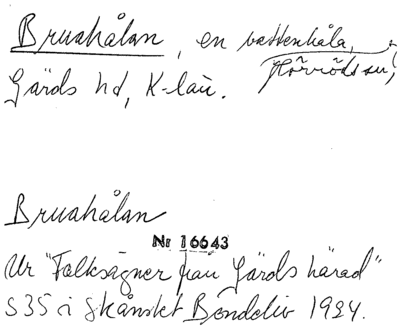 Bruahålan, en vattenhåla, i
Hörrödsån,
Gärds hd, K-län.
Bruahålan
Nr 16643
Ur "Folksägner från Gärds härad"
S 35 i Skånskt Bondeliv 1924.